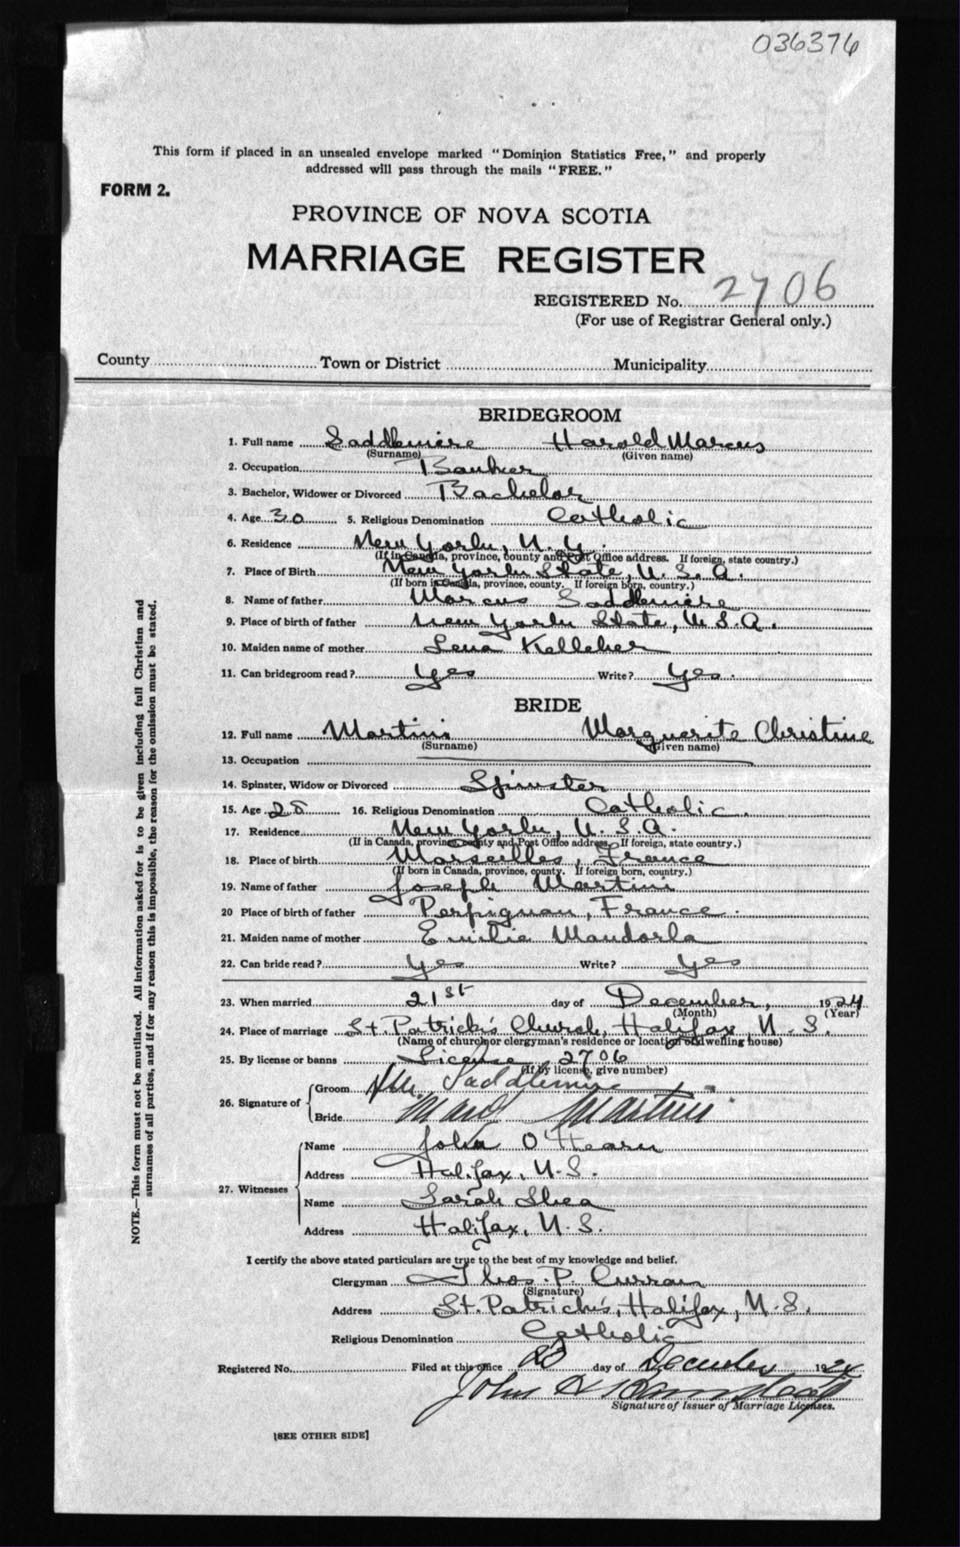 036376
This form if placed in an unsealed envelope marked "Dominion Statistics Free," and properly
addressed will pass through the mails "FREE."
FORM 2.
PROVINCE OF NOVA SCOTIA
MARRIAGE REGISTER
REGISTERED No. 2706
(For use of Registrar General only.)
County Town or District Municipality
BRIDEGROOM
1. Full name Saddlemire Harold Marcus
(Surname) (Given name)
2. Occupation Banker
3. Bachelor, Widower or Divorced Bachelor
4. Age 30 5. Religious Denomination Catholic
6. Residence New York, N.Y.
(If in Canada, province, county and Post Office address. If foreign, state country.)
7. Place of Birth New York State, U.S.A.
(If born in Canada, province, county. If foreign born, country.)
8. Name of father Marcus Saddlemire
9. Place of birth of father New York State, U.S.A.
10. Maiden name of mother Lena Kelleher
11. Can bridegroom read? Yes Write? Yes.
BRIDE
12. Full name Martini Marguerite Christine
(Surname) (Given name)
13. Occupation
14. Spinster, Widow or Divorced Spinster
15. Age 28 16. Religious Denomination Catholic.
17. Residence New York, U.S.A.
(If in Canada, province, county and Post Office address. If foreign, state country.)
18. Place of birth Marseilles, France
(If born in Canada, province, county. If foreign born, country.)
19. Name of father Joseph Martini
20 Place of birth of father Perpignan, France.
21. Maiden name of mother Emilie Mandorla
22. Can bride read? Yes Write? Yes
23. When married 21st day of December, 1924
(Month) (Year)
24. Place of marriage St. Patrick's Church, Halifax, N.S.
(Name of church or clergyman's residence or location of dwelling house)
25. By license or banns License 2706
(If by license, give number)
26. Signature of Groom Saddlemire
Bride Martini
27. Witnesses
Name John O'Hearn
Address Halifax, N.S.
Name Sarah Shea
Address Halifax, N.S.
I certify the above stated particulars are true to the best of my knowledge and belief.
Clergyman Thos. P. Curran
(Signature)
Address St. Patrick's, Halifax, N.S.
Religious Denomination Catholic
Registered No. Filed at this office day of December 1924
John
Signature of Issuer of Marriage Licenses.
[SEE OTHER SIDE]
NOTE.—This form must not be mutilated. All information asked for is to be given including full Christian and
surnames of all parties, and if for any reason this is impossible, the reason for the omission must be stated.